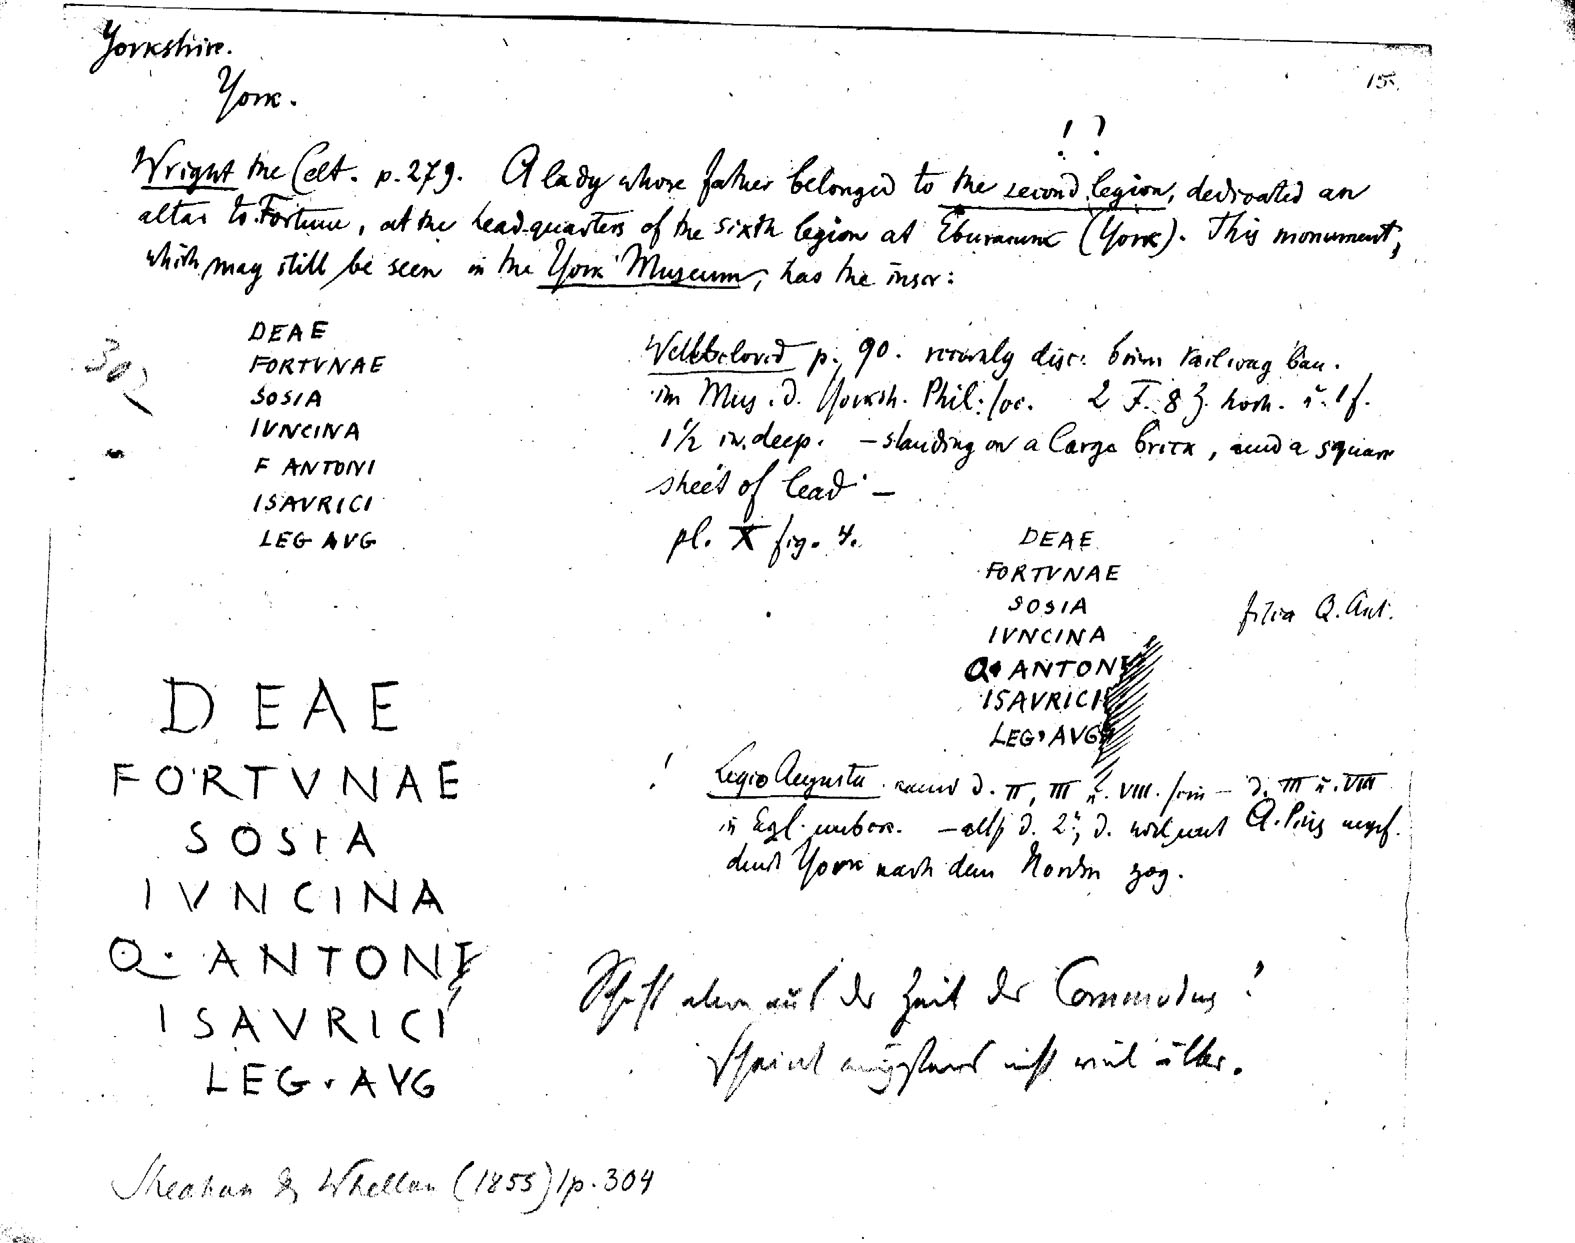 Yorkshire.
York.
15.
! ?
Wright the Celt. p. 279. A lady whose father belonged to the second legion, dedicated an
altar to Fortune, at the head-quarters of the sixth legion at Eburacum (York). This monument,
which may still be seen in the York Museum, has the inscr:
302
DEAE
FORTVNAE
SOSIA
IVNCINA
F ANTONI
ISAVRICI
LEG AVG
Wellbeloved p. 90. recently disc: beim railway bau.
im Mus. d. Yorksh. Phil: soc. 2 F. 8 Z. hoch. u. 1 f.
1½ in. deep. – standing on a large brick, and a square
sheet of lead –
pl. X fig. 4.
DEAE
FORTVNAE
SOSIA
IVNCINA
Q• ANTONI
ISAVRICI
LEG• AVG
filia Q. Ant.
DEAE
FORTVNAE
SOSIA
IVNCINA
Q. ANTONI
ISAVRICI
LEG. AVG
! Legio Augusta kann d. II, III u. VIII. sein – d. III u. VIII
in Egl. unbek. – also d. 2t, d. unt A. Pius
durch York nach dem Norden zog.
Schrift eben aus der Zeit des Commodus!
Scheint nicht viel älter.
Sheahan & Whellan (1855) / p. 304